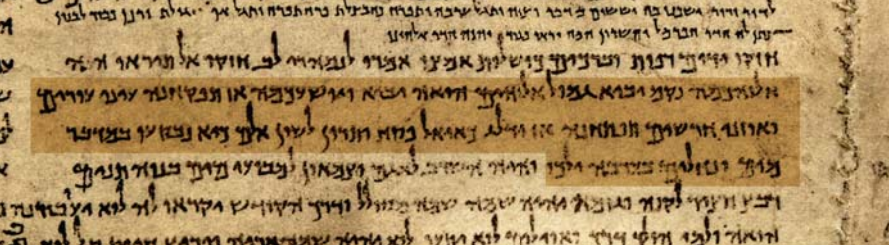 לדור ודור ישבו בה יששום מדבר וציה ותגל ערבה ותפרח כחבצלת פרח תפרח ותגל אף גילת ורנן כבוד לבנון
נתן לה הדר הכרמל והשרון המה יראו כבוד יהוה הדר אלוהינו
חוזקו ידים רפות וברכים כושלות אמצו אמרו לנמהרי לב חוזקו אל תיראו הנה
אלוהכמה נקם יביא גמול אלוהים הואה יביא ויושע עכמה אז תפקחנה עיני עורים
ואוזני חרשים תפתחנה אז ידלג כאיאל פסח ותרון לשון אלם כיא נבקעו במדבר
מים ונחלים בערבה ילכו והיה השרב לאגם וצמאון למבועי מים בנוה תנים
רבץ חציר לקנה וגומא יהיה שמה שמה מסלול ודרך הקודש יקראו לה לוא יעוברנה
הולך דרך ואוילים לוא יתעו לוא יהיה שמה אריה ופריץ חיות